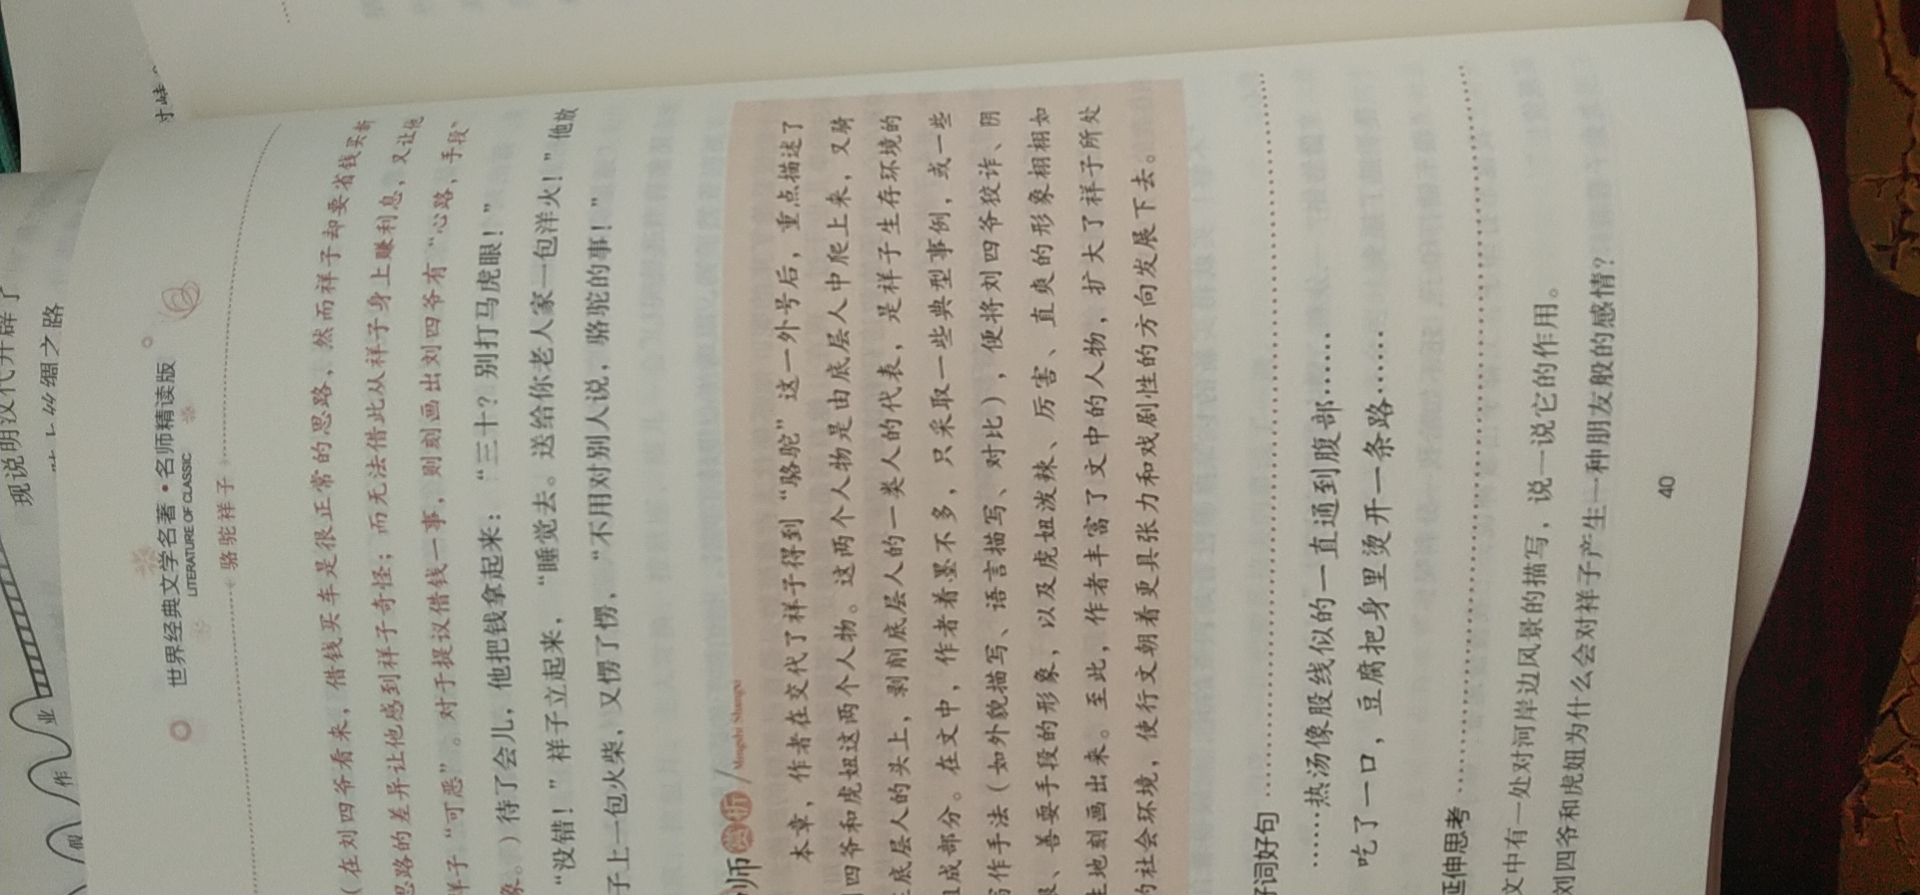 现说明汉代开辟了
绸之路
作
业
世界经典文学名著·名师精读版
LITERATURE OF CLASSIC
骆驼祥子
（在刘四爷看来，借钱买车是很正常的思路，然而祥子却要省钱买新
思路的差异让他感到祥子奇怪；而无法借此从祥子身上赚利息，又让他
祥子“可恶”。对于提议借钱一事，则刻画出刘四爷有“心路，手段”
象。）待了会儿，他把钱拿起来：“三十？别打马虎眼！”
“没错！”祥子立起来，“睡觉去。送给你老人家一包洋火！”他放
子上一包火柴，又愣了愣，“不用对别人说，骆驼的事！”
师赏析 / Mingshi Shangxi
本章，作者在交代了祥子得到“骆驼”这一外号后，重点描述了
四爷和虎妞这两个人物。这两个人物是由底层人中爬上来，又骑
底层人的头上，剥削底层人的一类人的代表，是祥子生存环境的
组成部分。在文中，作者着墨不多，只采取一些典型事例，或一些
写作手法（如外貌描写、语言描写、对比），便将刘四爷狡诈、阴
狠、善耍手段的形象，以及虎妞泼辣、厉害、直爽的形象栩栩如
生地刻画出来。至此，作者丰富了文中的人物，扩大了祥子所处
的社会环境，使行文朝着更具张力和戏剧性的方向发展下去。
好词好句
……热汤像股线似的一直通到腹部……
吃了一口，豆腐把身里烫开一条路……
延伸思考
文中有一处对河岸边风景的描写，说一说它的作用。
刘四爷和虎妞为什么会对祥子产生一种朋友般的感情？
40